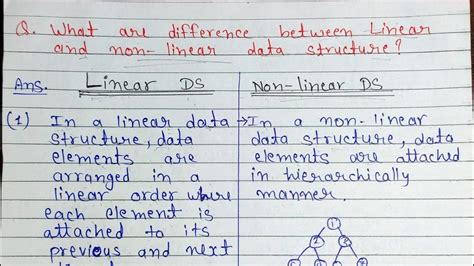 Q. What are difference between Linear
and non-linear data structure?
Ans. Linear DS Non-linear DS
(1) In a linear data → In a non-linear
structure, data data structure, data
elements are elements are attached
arranged in a in hierarchically
linear order where manner.
each element is
attached to its 1
previous and next 2 3